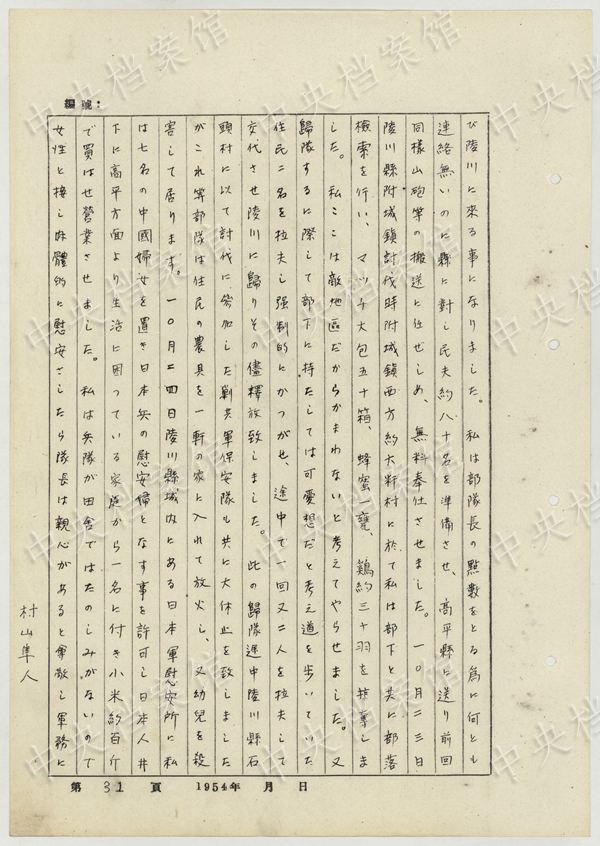 編號:
び陵川に来る事になりました。私は部隊長の點数をとる為に何とも
連絡無いのに縣に対し民夫約八十名を準備させ、高平縣に送り前回
同様山砲等の搬送に任ぜしめ、無料奉仕させました。一〇月二三日
陵川縣附城鎮討伐時附城鎮西方約大籵村に於て私は部下と共に部落
檢索を行い、マッチ大包五十箱、蜂蜜一甕、鷄約三十羽を掠奪しま
した。私ここは敵地區だからかまわないと考えてやらせました。又
歸隊するに際して部下に持たしては可愛想だと考え道を歩いていた
住民二名を拉夫し强制的にかつがせ、途中で一回又二人を拉夫して
交代させ陵川に歸りその儘釋放致しました。此の歸隊途中陵川縣石
頭村に以て討伐に参加した剿共軍保安隊も共に大休止を致しました
がこれ等部隊は住民の農具を一軒の家に入れて放火し、又幼兒を殺
害して居ります。一〇月二四日陵川縣城内にある日本軍慰安所に私
は七名の中國婦女を置き日本兵の慰安婦となす事を許可し日本人井
下に高平方面より生活に困っている家庭から一名に付き小米約百斤
で買はせ營業させました。私は兵隊が田舎ではたのしみがないので
女性と接し肉體的に慰安さしたら隊長は親心があると奮敢し軍務に
村山隼人
第 31 頁 1954年 月 日
中央档案馆